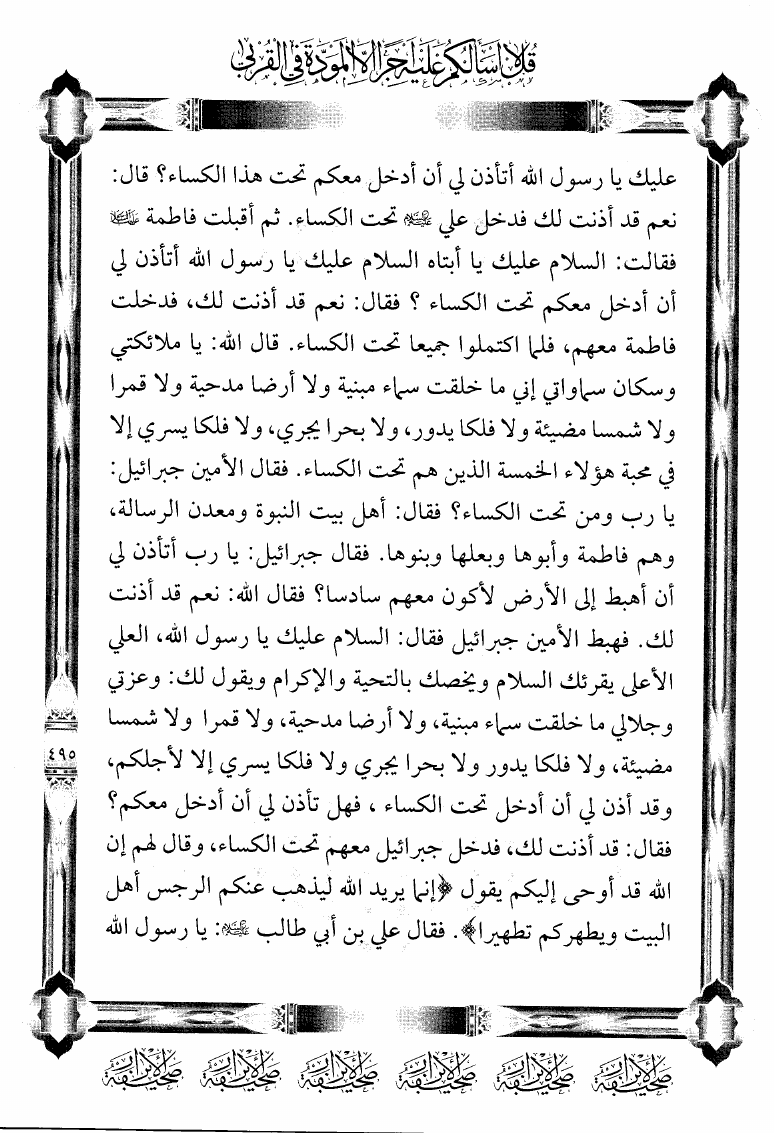 قل لا أسألكم عليه أجرا إلا المودة في القربى
عليك يا رسول الله أتأذن لي أن أدخل معكم تحت هذا الكساء؟ قال:
نعم قد أذنت لك فدخل علي عليه السلام تحت الكساء. ثم أقبلت فاطمة عليها السلام
فقالت: السلام عليك يا أبتاه السلام عليك يا رسول الله أتأذن لي
أن أدخل معكم تحت الكساء ؟ فقال: نعم قد أذنت لك، فدخلت
فاطمة معهم، فلما اكتملوا جميعا تحت الكساء. قال الله: يا ملائكتي
وسكان سماواتي إني ما خلقت سماء مبنية ولا أرضا مدحية ولا قمرا
ولا شمسا مضيئة ولا فلكا يدور، ولا بحرا يجري، ولا فلكا يسري إلا
في محبة هؤلاء الخمسة الذين هم تحت الكساء. فقال الأمين جبرائيل:
يا رب ومن تحت الكساء؟ فقال: أهل بيت النبوة ومعدن الرسالة،
وهم فاطمة وأبوها وبعلها وبنوها. فقال جبرائيل: يا رب أتأذن لي
أن أهبط إلى الأرض لأكون معهم سادسا؟ فقال الله: نعم قد أذنت
لك. فهبط الأمين جبرائيل فقال: السلام عليك يا رسول الله، العلي
الأعلى يقرئك السلام ويخصك بالتحية والإكرام ويقول لك: وعزتي
وجلالي ما خلقت سماء مبنية، ولا أرضا مدحية، ولا قمرا ولا شمسا
مضيئة، ولا فلكا يدور ولا بحرا يجري ولا فلكا يسري إلا لأجلكم،
وقد أذن لي أن أدخل تحت الكساء ، فهل تأذن لي أن أدخل معكم؟
فقال: قد أذنت لك، فدخل جبرائيل معهم تحت الكساء، وقال لهم إن
الله قد أوحى إليكم يقول ﴿إنما يريد الله ليذهب عنكم الرجس أهل
البيت ويطهركم تطهيرا﴾. فقال علي بن أبي طالب عليه السلام: يا رسول الله
٤٩٥